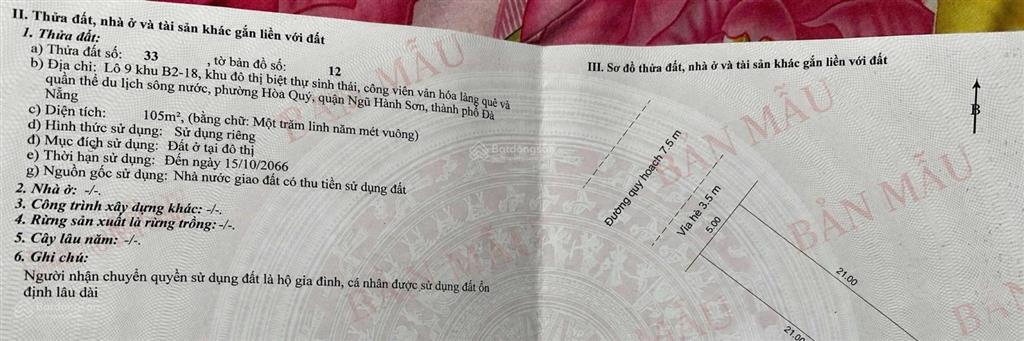 II. Thửa đất, nhà ở và tài sản khác gắn liền với đất
1. Thửa đất:
a) Thửa đất số: 33 , tờ bản đồ số: 12
b) Địa chỉ: Lô 9 khu B2-18, khu đô thị biệt thự sinh thái, công viên văn hóa làng quê và
quần thể du lịch sông nước, phường Hòa Quý, quận Ngũ Hành Sơn, thành phố Đà
Nẵng
c) Diện tích: 105m², (bằng chữ: Một trăm linh năm mét vuông)
d) Hình thức sử dụng: Sử dụng riêng
đ) Mục đích sử dụng: Đất ở tại đô thị
e) Thời hạn sử dụng: Đến ngày 15/10/2066
g) Nguồn gốc sử dụng: Nhà nước giao đất có thu tiền sử dụng đất
2. Nhà ở: -/-.
3. Công trình xây dựng khác: -/-.
4. Rừng sản xuất là rừng trồng: -/-.
5. Cây lâu năm: -/-.
6. Ghi chú:
Người nhận chuyển quyền sử dụng đất là hộ gia đình, cá nhân được sử dụng đất ổn
định lâu dài
BẢN MẪU
BẢN MẪU
Batdongsan
III. Sơ đồ thửa đất, nhà ở và tài sản khác gắn liền với đất
B
Đường quy hoạch 7.5 m
Vỉa hè 3.5 m
5.00
21.00
21.00
BẢN MẪU
BẢN MẪU
BẢN MẪU
BẢN